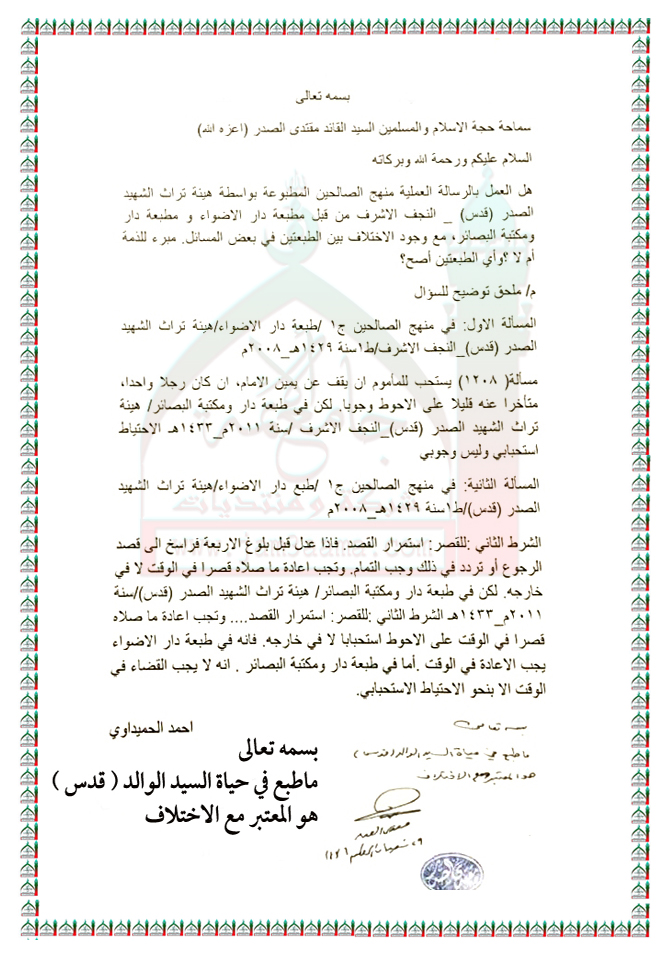 بسمه تعالى
سماحة حجة الاسلام والمسلمين السيد القائد مقتدى الصدر (اعزه الله)
السلام عليكم ورحمة الله وبركاته
هل العمل بالرسالة العملية منهج الصالحين المطبوعة بواسطة هيئة تراث الشهيد
الصدر (قدس) _ النجف الاشرف من قبل مطبعة دار الاضواء و مطبعة دار
ومكتبة البصائر، مع وجود الاختلاف بين الطبعتين في بعض المسائل. مبرء للذمة
أم لا ؟وأي الطبعتين أصح؟
م/ ملحق توضيح للسؤال
المسألة الاول: في منهج الصالحين ج١ /طبعة دار الاضواء/هيئة تراث الشهيد
الصدر (قدس)_النجف الاشرف/ط١سنة ١٤٢٩هـ_٢٠٠٨م
مسألة( ١٢٠٨) يستحب للمأموم ان يقف عن يمين الامام، ان كان رجلا واحدا،
متأخرا عنه قليلا على الاحوط وجوبا. لكن في طبعة دار ومكتبة البصائر/ هيئة
تراث الشهيد الصدر (قدس)_النجف الاشرف /سنة ٢٠١١م_١٤٣٣هـ الاحتياط
استحبابي وليس وجوبي
المسألة الثانية: في منهج الصالحين ج١ /طبع دار الاضواء/هيئة تراث الشهيد
الصدر (قدس)/ط١سنة ١٤٢٩هـ_٢٠٠٨م
الشرط الثاني :للقصر: استمرار القصد. فإذا عدل قبل بلوغ الاربعة فراسخ الى قصد
الرجوع أو تردد في ذلك وجب التمام. وتجب اعادة ما صلاه قصرا في الوقت لا في
خارجه. لكن في طبعة دار ومكتبة البصائر/ هيئة تراث الشهيد الصدر (قدس)/سنة
٢٠١١م_١٤٣٣هـ الشرط الثاني :للقصر: استمرار القصد.... وتجب اعادة ما صلاه
قصرا في الوقت على الاحوط استحبابا لا في خارجه. فانه في طبعة دار الاضواء
يجب الاعادة في الوقت .أما في طبعة دار ومكتبة البصائر . انه لا يجب القضاء في
الوقت الا بنحو الاحتياط الاستحبابي.
احمد الحميداوي
بسمه تعالى
ما طبع في حياة السيد الوالد (قدس)
هو المعتبر مع الاختلاف
بسمه تعالى
ماطبع في حياة السيد الوالد ( قدس )
هو المعتبر مع الاختلاف